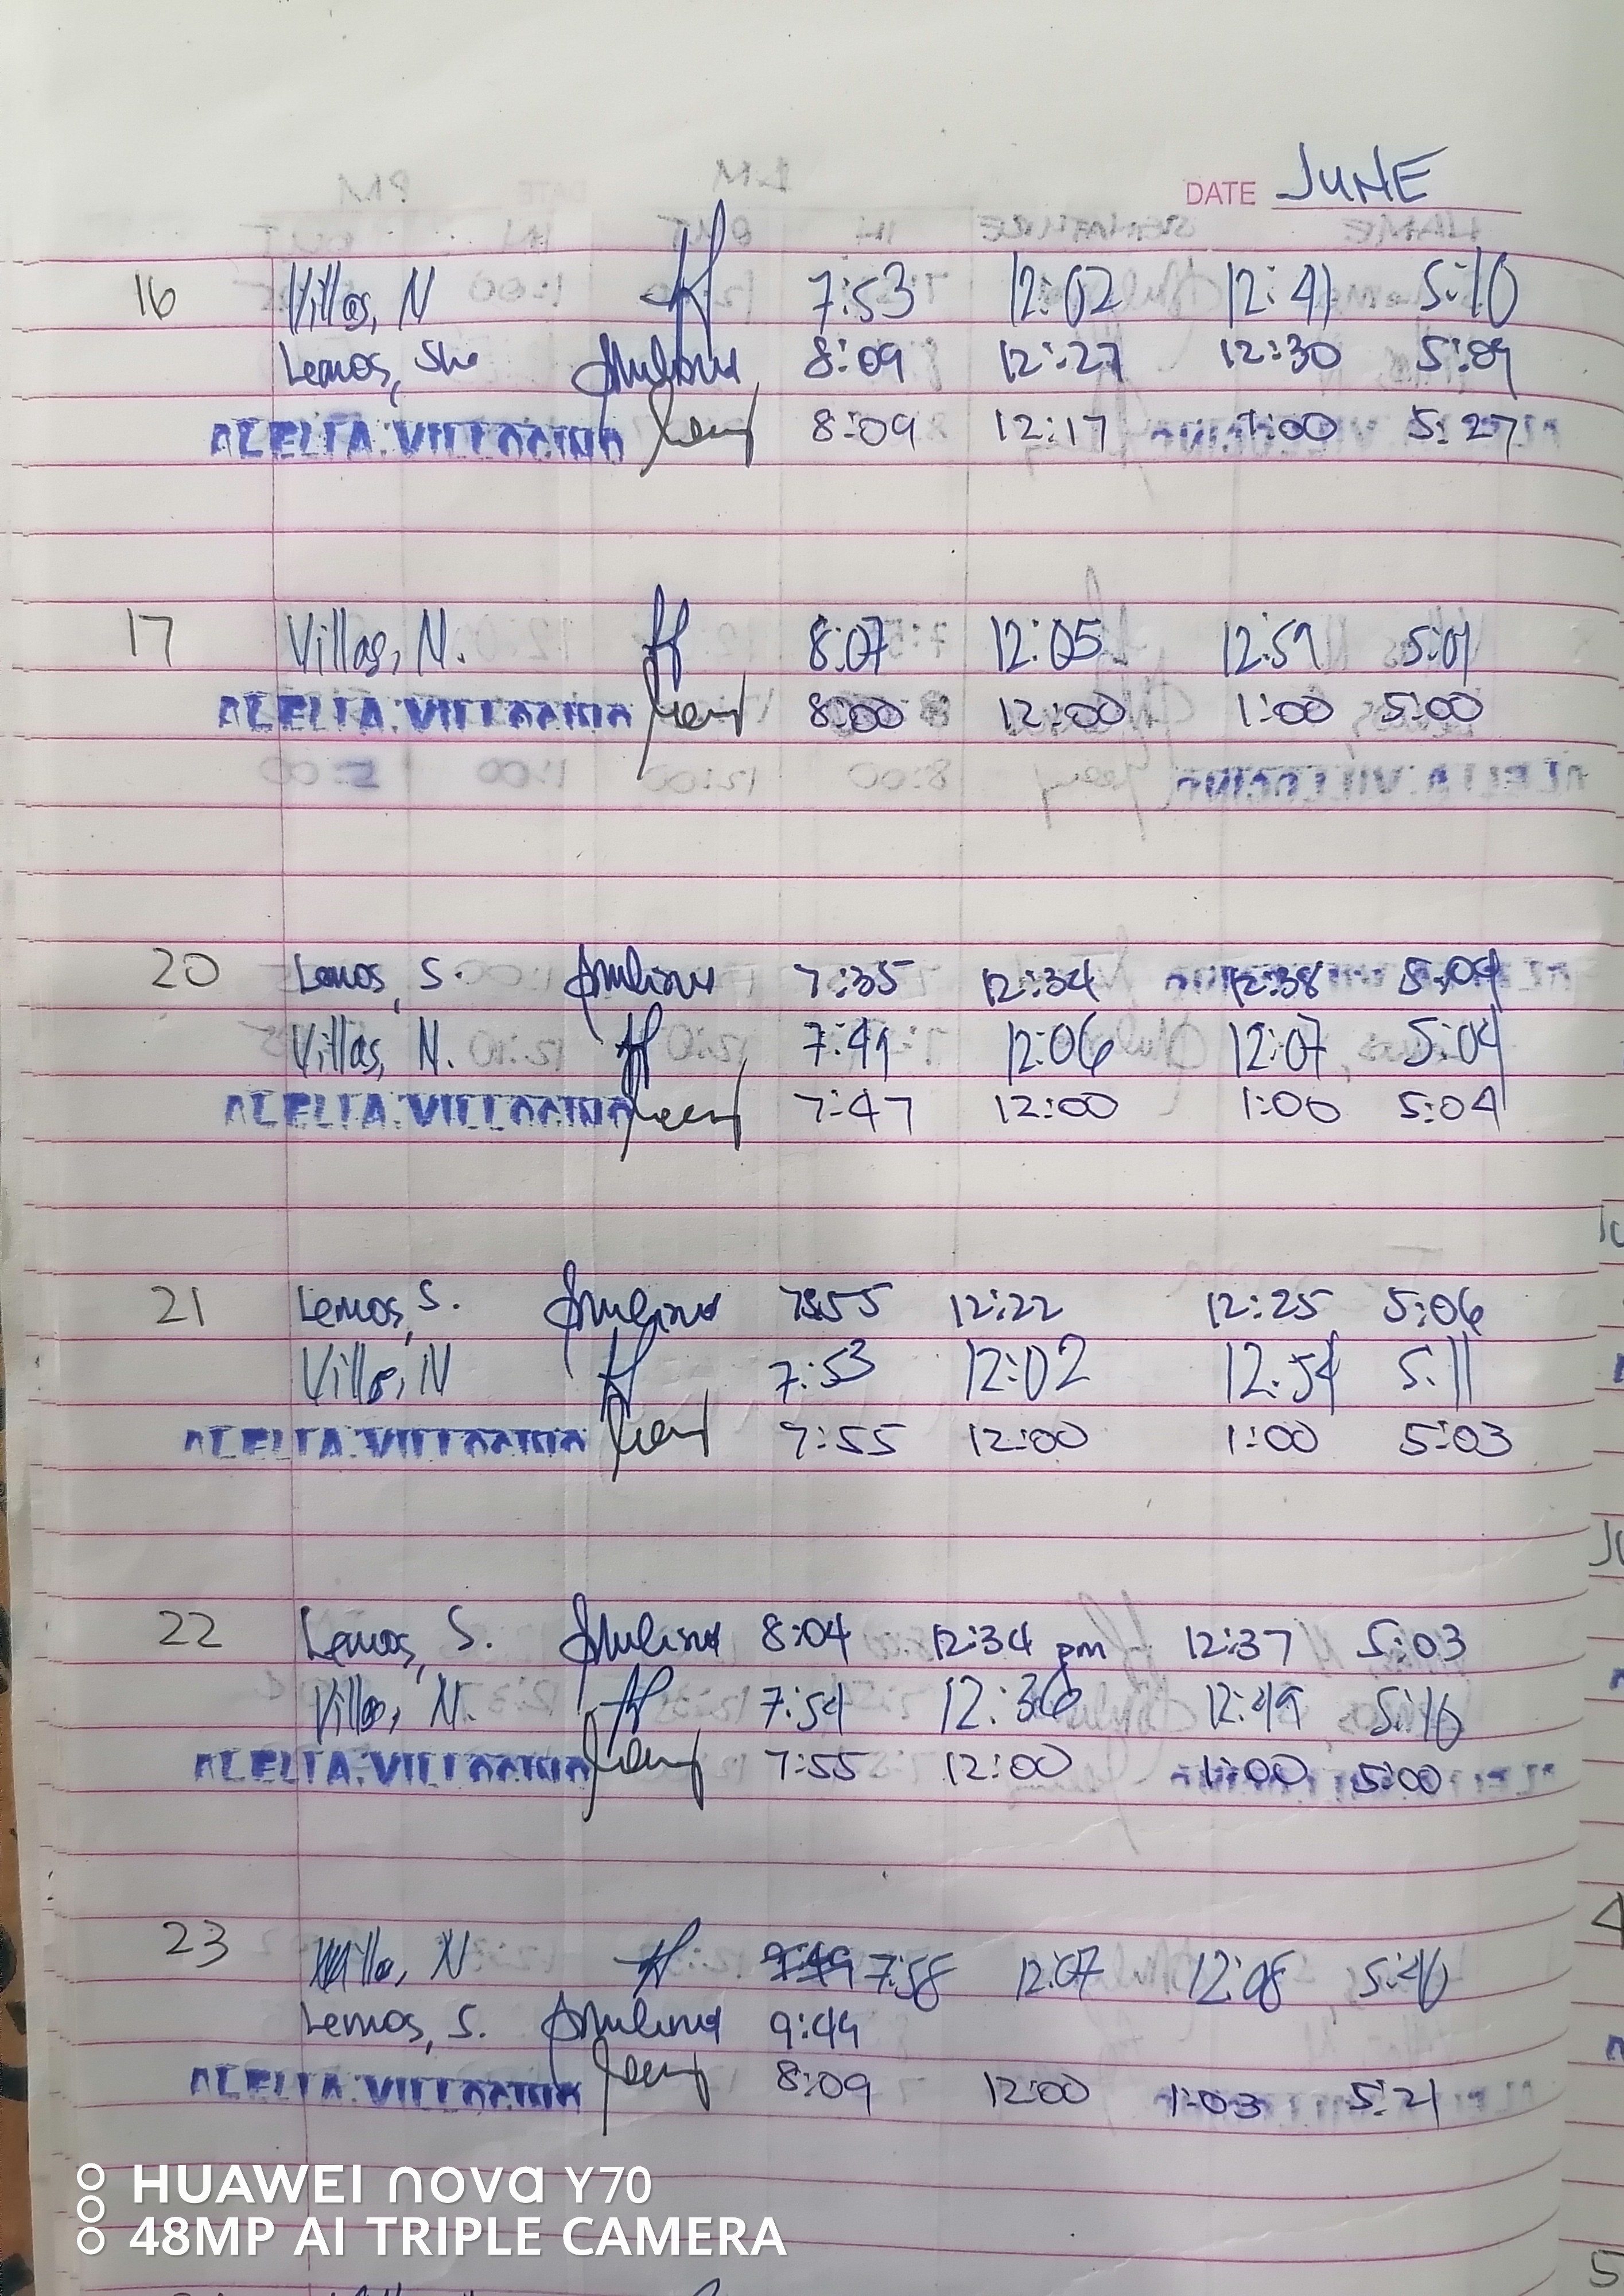 DATE JUNE
16 Villas, N 7:53 12:02 12:41 5:10
Lemos, She 8:09 12:27 12:30 5:09
ALELI A. VILLOCINO 8:09 12:17 1:00 5:27
17 Villas, N. 8:07 12:05 12:59 5:01
ALELI A. VILLOCINO 8:00 12:00 1:00 5:00
20 Lemos, S. 7:35 12:34 12:38 5:04
Villas, N. 7:49 12:06 12:07 5:04
ALELI A. VILLOCINO 7:47 12:00 1:00 5:04
21 Lemos, S. 7:55 12:22 12:25 5:06
Villas, N 7:53 12:02 12:54 5:11
ALELI A. VILLOCINO 7:55 12:00 1:00 5:03
22 Lemos, S. 8:04 12:34 pm 12:37 5:03
Villas, N. 7:54 12:36 12:49 5:10
ALELI A. VILLOCINO 7:55 12:00 1:00 5:00
23 Villas, N 7:58 12:07 12:08 5:40
Lemos, S. 9:44
ALELI A. VILLOCINO 8:09 12:00 1:03 5:21
HUAWEI nova Y70
48MP AI TRIPLE CAMERA